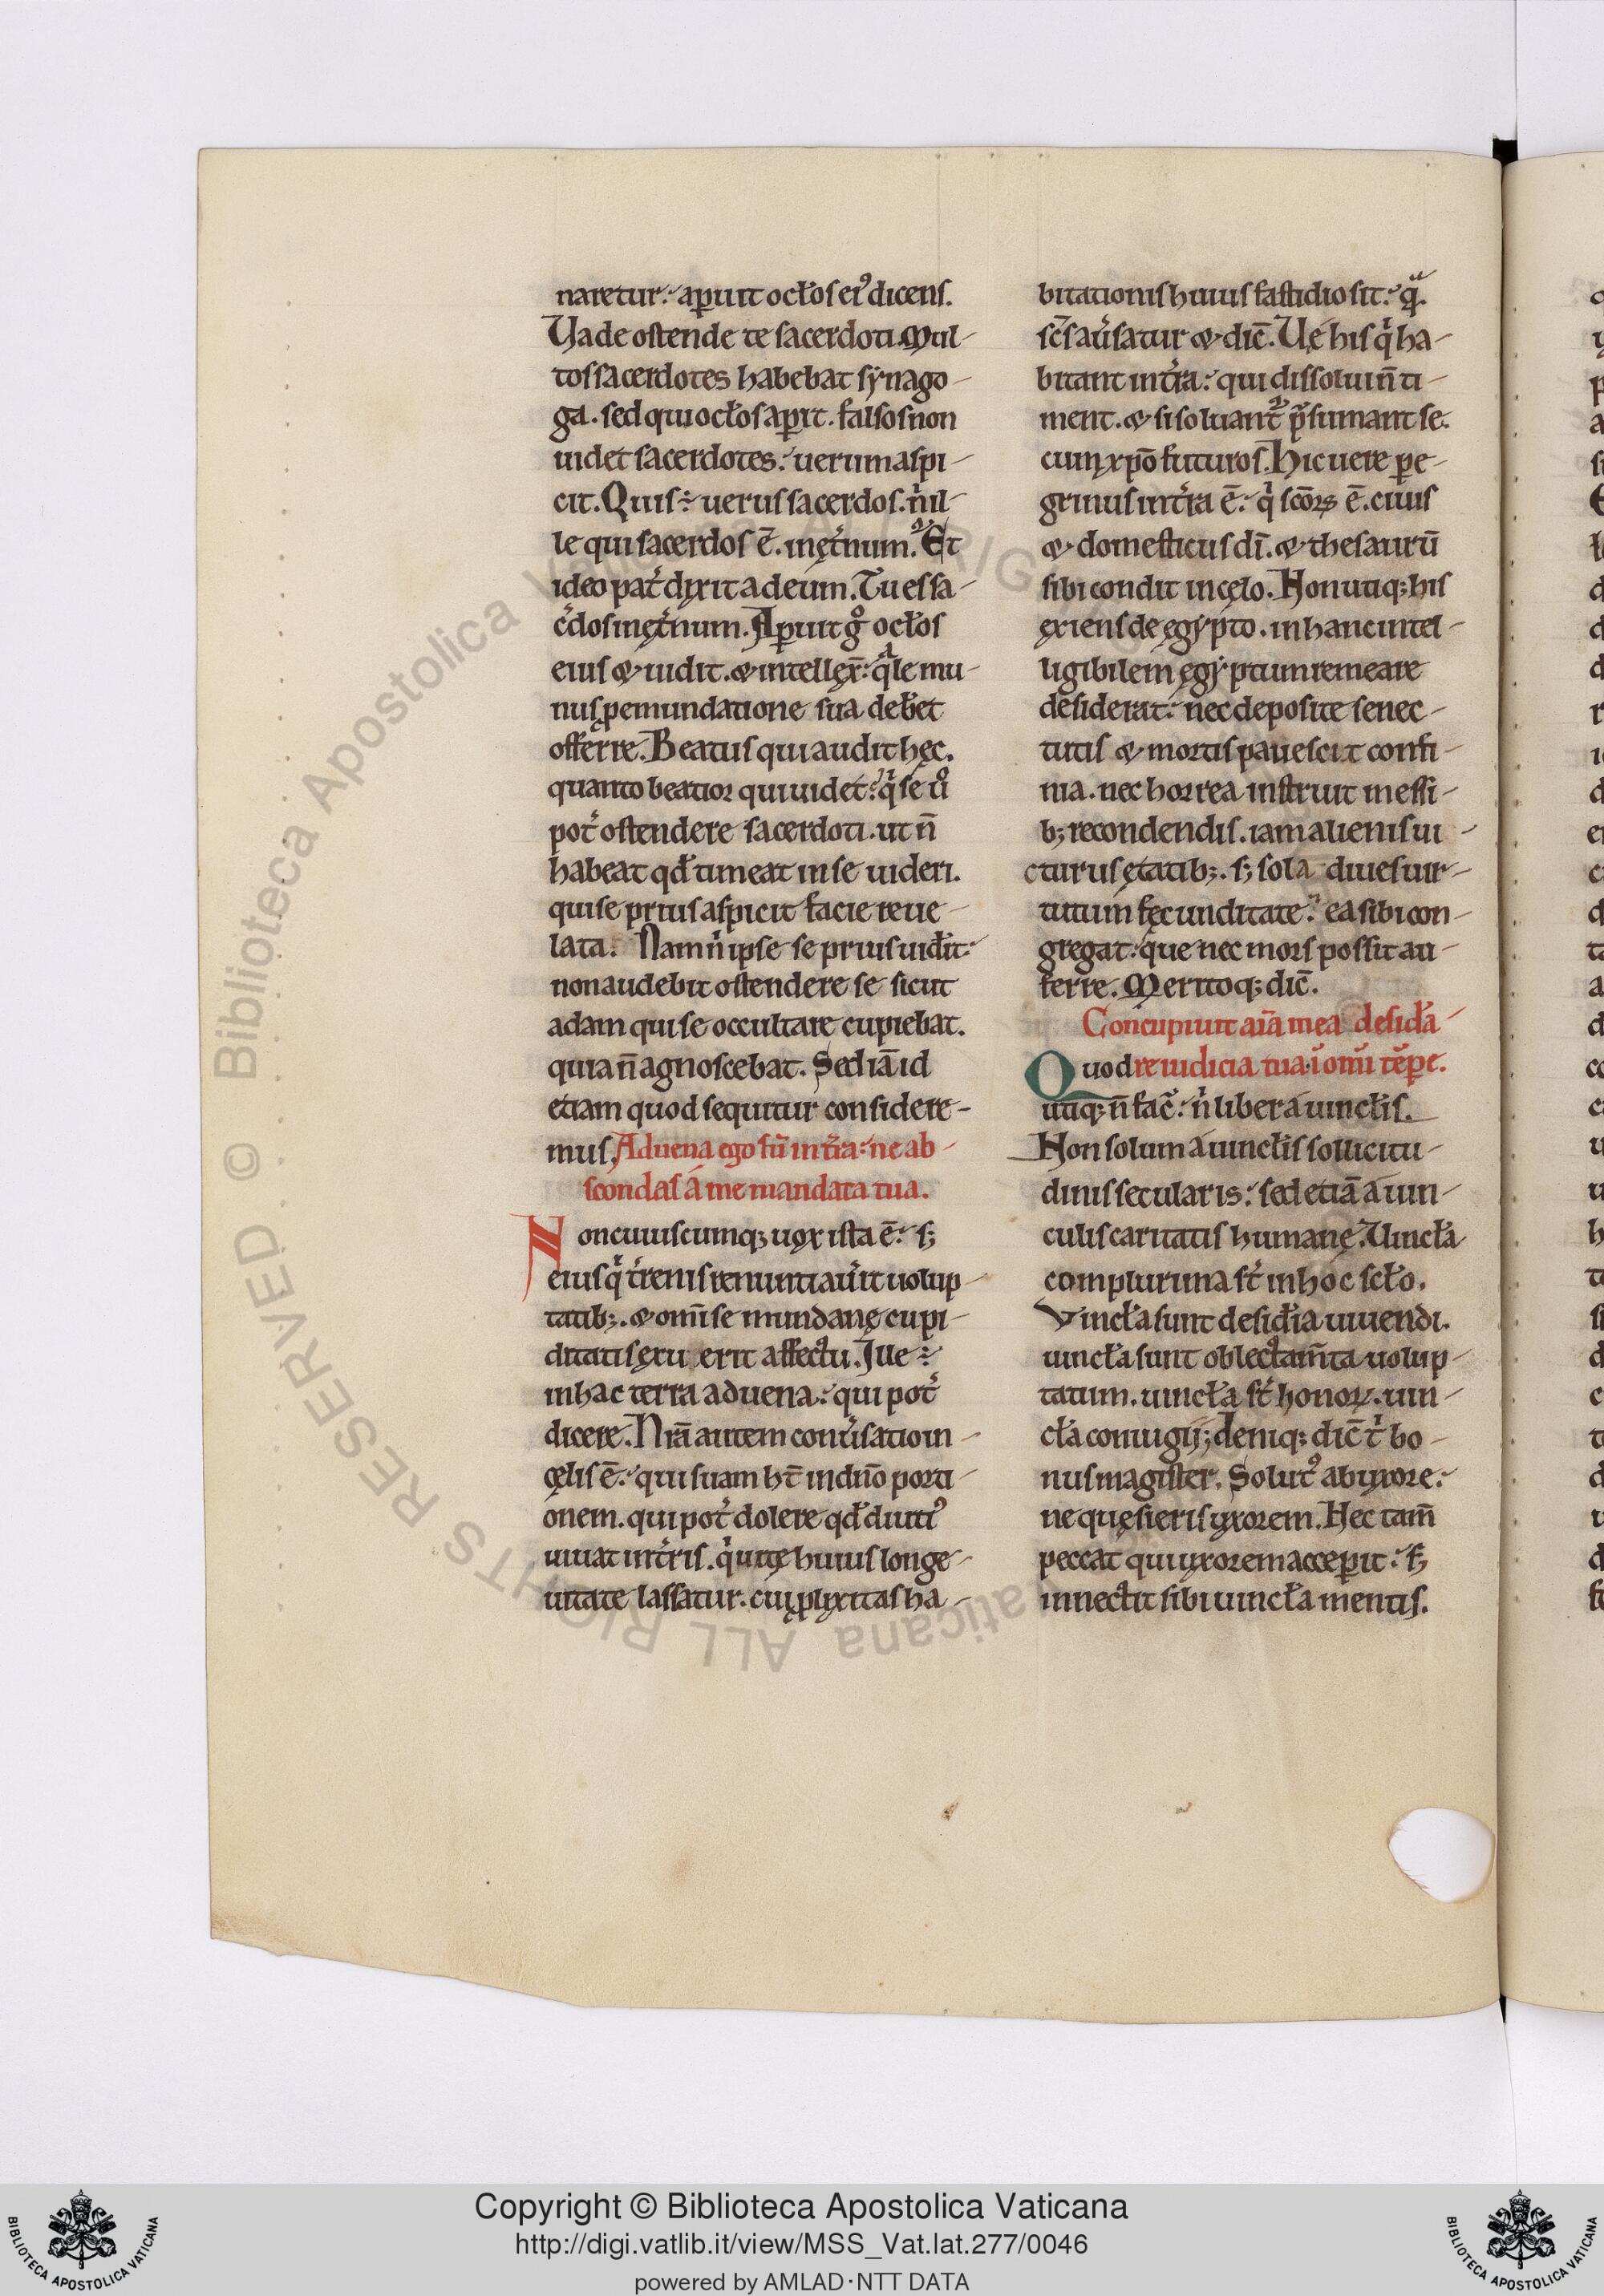 naretur. aperuit ocłos ei᾽ dicens.
Vade ostende te sacerdoti. Mul-
tos sacerdotes habebat synago-
ga. sed qui ocłos aperit. falsos non
uidet sacerdotes. uerum aspi-
cit. Quis ÷ uerus sacerdos. nͥ il-
le qui sacerdos ē. in ęt͛num.ˀ Et
ideo pat͛ dixit ad eum. Tu es sa-
c͛dos in ęt͛num. Aperuit gͦ ocłos
eius & uidit. & intellex̄. qͣle mu-
nus ꝓ emundatione sua deb̵et
offerre. Beatus qui audit hęc.
quanto beatior qui uidet. qͥ se uͦ
pot͛ ostendere sacerdoti. ut n̄
habeat qđ timeat in se uideri.
qui se prius aspicit facie reue-
lata. Nam nͥ ipse se prius uiđit.
non audebit ostendere se sicut
adam qui se occultare cupiebat.
quia n̄ agnoscebat. Sed iā id
etiam quod sequitur considere-
mus. Aduena ego sū in t͛ra. ne ab-
scondas á me mandata tua.
Non cuiuscumq; uox ista ē. s;
eius qͥ t͛renis renuntiau͛it uolup-
tatib;. & om̄i se mundanę cupi-
ditatis exuerit affectu. Ille ÷
in hac terra aduena. qui pot͛
dicere. Nrā autem conu͛satio in
cęlis ē. qui suam ht̄ in dn̄o porti-
onem. qui pot͛ dolere qđ diuti᾽
uiuat in t͛ris. qͥ uitę huius longe-
uitate lassatur. cui ꝓlixitas ha-
bitationis huius fastidio sit. qͣ.
sc̄s au͛satur & dic̄. Vę his qͥ ha-
bitant in t͛ra. qui dissolui n̄ ti-
ment. & si soluant᾽ p̄sumant se.
cum xp̄o futuros. Hic uere pe-
grinus in t͛ra ē. qͥ sc̄oꝝ ē. ciuis
& domesticus dī. & thesaurū
sibi condit in cęlo. Non utiq; his
exiens de egypto. in hanc intel-
ligibilem egyptum remeare
desiderat. nec deposite senec-
tutis & mortis pauescit confi-
nia. nec horrea instruit messi-
b; recondendis. iam alienis ui-
cturus ętatib;. s; sola diues uir-
tutum fęcunditate. ea sibi con-
gregat. quę nec mors possit au-
ferre. Meritoq; dic̄.
Concupiuit aīa mea desiđa-
Quod re iudicia tua. ī om̄i tēpe.
utiq; n̄ fac̄. nͥ libera uincłis.
Non solum a uincłis sollicitu-
dinis secularis. sed etiā á uin-
culis caritatis humanę. Vincła
complurima st͛ in hoc scło.
Vincła sunt desiđia uiuendi.
uincła sunt oblectam̄ta uolup-
tatum. uincła st͛ honoꝝ. uin-
cła coniugij; deniq; dic̄ t͛ bo-
nus magister. Solut᾽ ab uxore.
ne quęsieris uxorem. Nec tam̄
peccat qui uxorem acceperit. s;
innectit sibi uincła mentis.
Copyright © Biblioteca Apostolica Vaticana
http://digi.vatlib.it/view/MSS_Vat.lat.277/0046
powered by AMLAD·NTT DATA